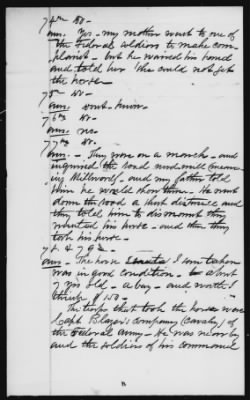 74th Do -
Ans. Yes - my mother went to one of
the Federal soldiers to make com-
plaint - but he waived his hand
and told her she could not get
the horse -
75 Do -
Ans. dont know -
76th Do -
Ans. no -
77th Do -
Ans. - They were on a march - and
inquired the road
Millwood - and my father told
them he would show them. He went
down the road a short distance and
they told him to dismount they
wanted his horse - and then they
took his horse -
78 & 79th -
Ans - The horse I saw taken
was in good condition. about
7 yrs old - a bay - and worth I
think $150 -
The troops that took the horse were
Capt Blazer's Company (Cavalry) of
the Federal Army - He was near by
and the soldiers of his command